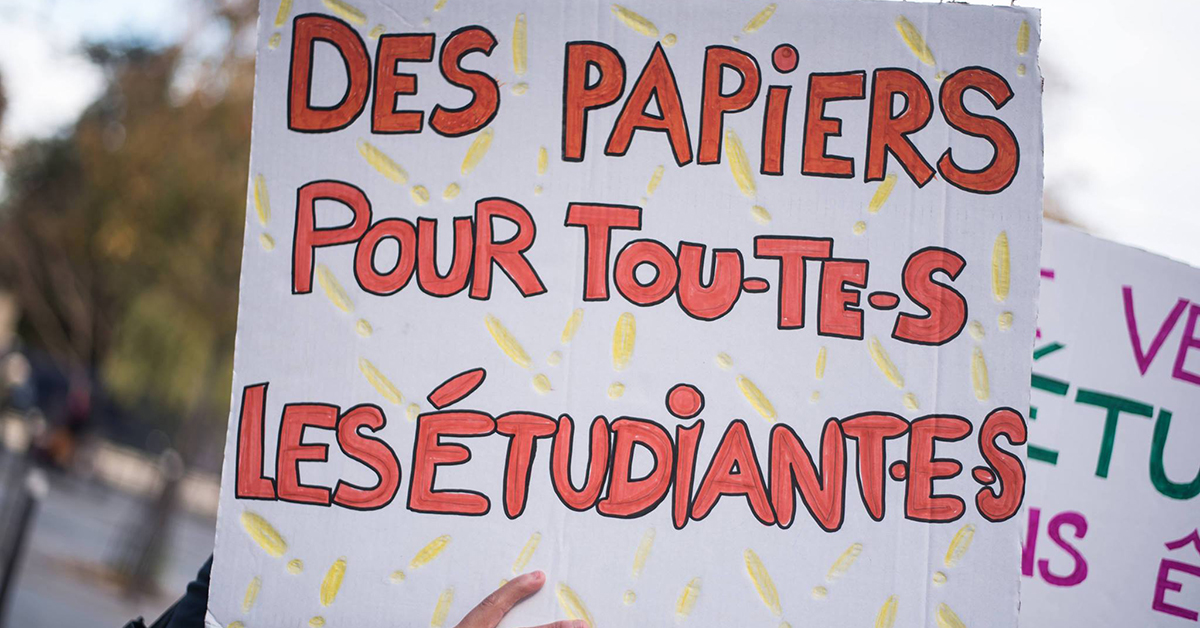 DES PAPIERS
POUR TOU-TE-S
LES ÉTUDIANT·E·S